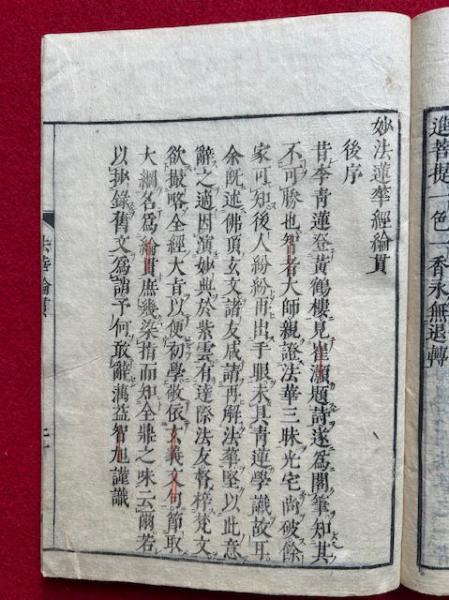 進菩提一色一香永無退轉
妙法蓮華經綸貫
後序
昔李青蓮登黃鶴樓見崔顥題詩遂爲閣筆知其
不可勝也智者大師親證法華三昧光宅尚破餘
家可知後人紛紛再出手眼未具青蓮學識故耳
余既述佛頂玄文諸友戚請再解法華堅以此意
辭之適因演妙典於紫雲有達際法友督梓梵文
欲撮略全經大旨以便初學敬依玄義文句節取
大綱名爲綸貫庶幾染指而知全鼎之味云爾若
以抄錄舊文爲誚予何敢辭蕅益智旭謹識
法華綸貫